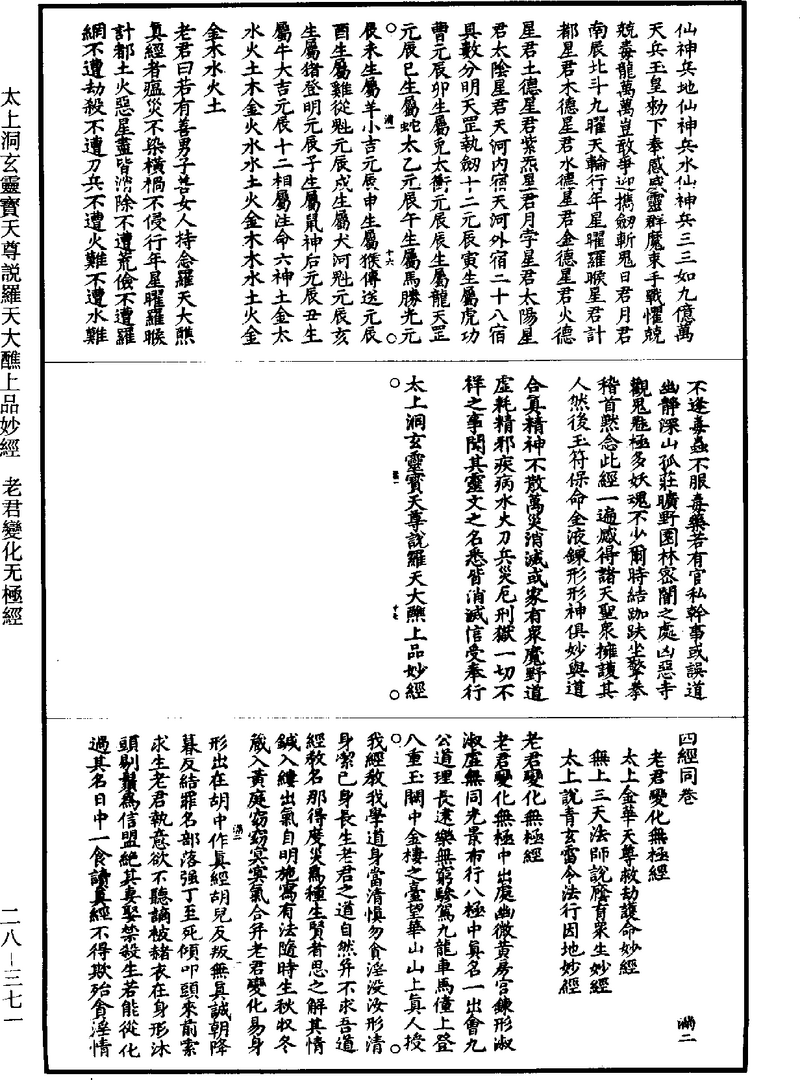 仙神兵地仙神兵水仙神兵三三如九億萬
天兵玉皇勑下奉感威靈群魔束手戰懼兢
兢毒龍萬萬豈敢爭迎攜劒斬鬼日君月君
南辰北斗九曜天輪行年星曜羅睺星君計
都星君木德星君水德星君金德星君火德
星君土德星君紫炁星君月孛星君太陽星
君太陰星君天河內宿天河外宿二十八宿
具數分明天罡執劒十二元辰寅生屬虎功
曹元辰卯生屬兎太衝元辰辰生屬龍天罡
元辰巳生屬蛇太乙元辰午生屬馬勝光元
辰未生屬羊小吉元辰申生屬猴傳送元辰
酉生屬雞從魁元辰戌生屬犬河魁元辰亥
生屬猪登明元辰子生屬鼠神后元辰丑生
屬牛大吉元辰十二相屬注命六神土金太
水火土木金火水水土火金木木水土火金
金木水火土
老君曰若有善男子善女人持念羅天大醮
真經者瘟災不染橫禍不侵行年星曜羅睺
計都土火惡星盡皆消除不遭荒儉不遭羅
網不遭劫殺不遭刀兵不遭火難不遭水難
不逢毒蟲不服毒藥若有官私幹事或誤道
幽靜深山孤莊曠野園林密闇之處凶惡寺
觀鬼魅極多妖魂不少爾時結跏趺坐擎拳
稽首默念此經一遍感得諸天聖衆擁護其
人然後玉符保命金液鍊形形神俱妙與道
合真精神不散萬災消滅或家有衆魔野道
虛耗精邪疾病水火刀兵災厄刑獄一切不
祥之事聞其靈文之名悉皆消滅信受奉行
太上洞玄靈寶天尊說羅天大醮上品妙經
四經同卷
老君變化無極經
太上金華天尊救劫護命妙經
無上三天法師說廕育衆生妙經
太上說青玄雷令法行因地妙經
滿二
老君變化無極經
老君變化無極中出處幽微黃房宮鍊形淑
淑虛無同光景布行八極中真名一出會九
公道理長遠樂無窮驂駕九龍車馬僮上登
八重玉闕中金樓之臺望華山山上真人授
我經教我學道身當清慎勿貪淫沒汝形清
身潔已身長生老君之道自然弁不求吾道
經教名那得度災爲種生賢者思之解其情
鍼入縷出氣自明施寫有法隨時生秋收冬
藏入黃庭窈窈冥冥氣合弁老君變化易身
形出在胡中作真經胡兒反叛無真誠朝降
暮反結罪名部落强丁至死傾叩頭來前索
求生老君執意欲不聽謫被赭衣在身形沐
頭剔鬚爲信盟絕其妻娶禁殺生若能從化
過其名日中一食讀真經不得欺殆貪淫情
太上洞玄靈寶天尊説羅天大醮上品妙經　老君變化无極經
二八－三七一